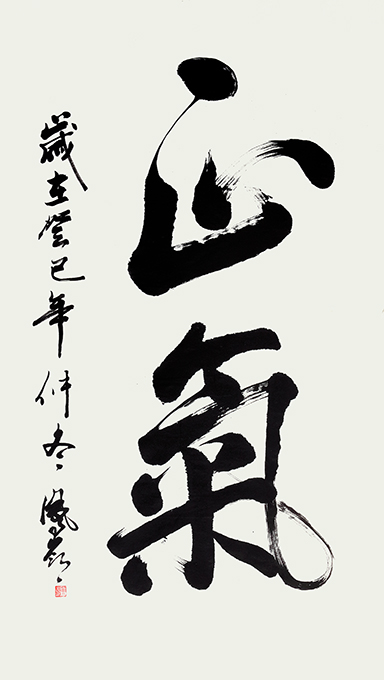 正氣
歲在癸巳年仲冬